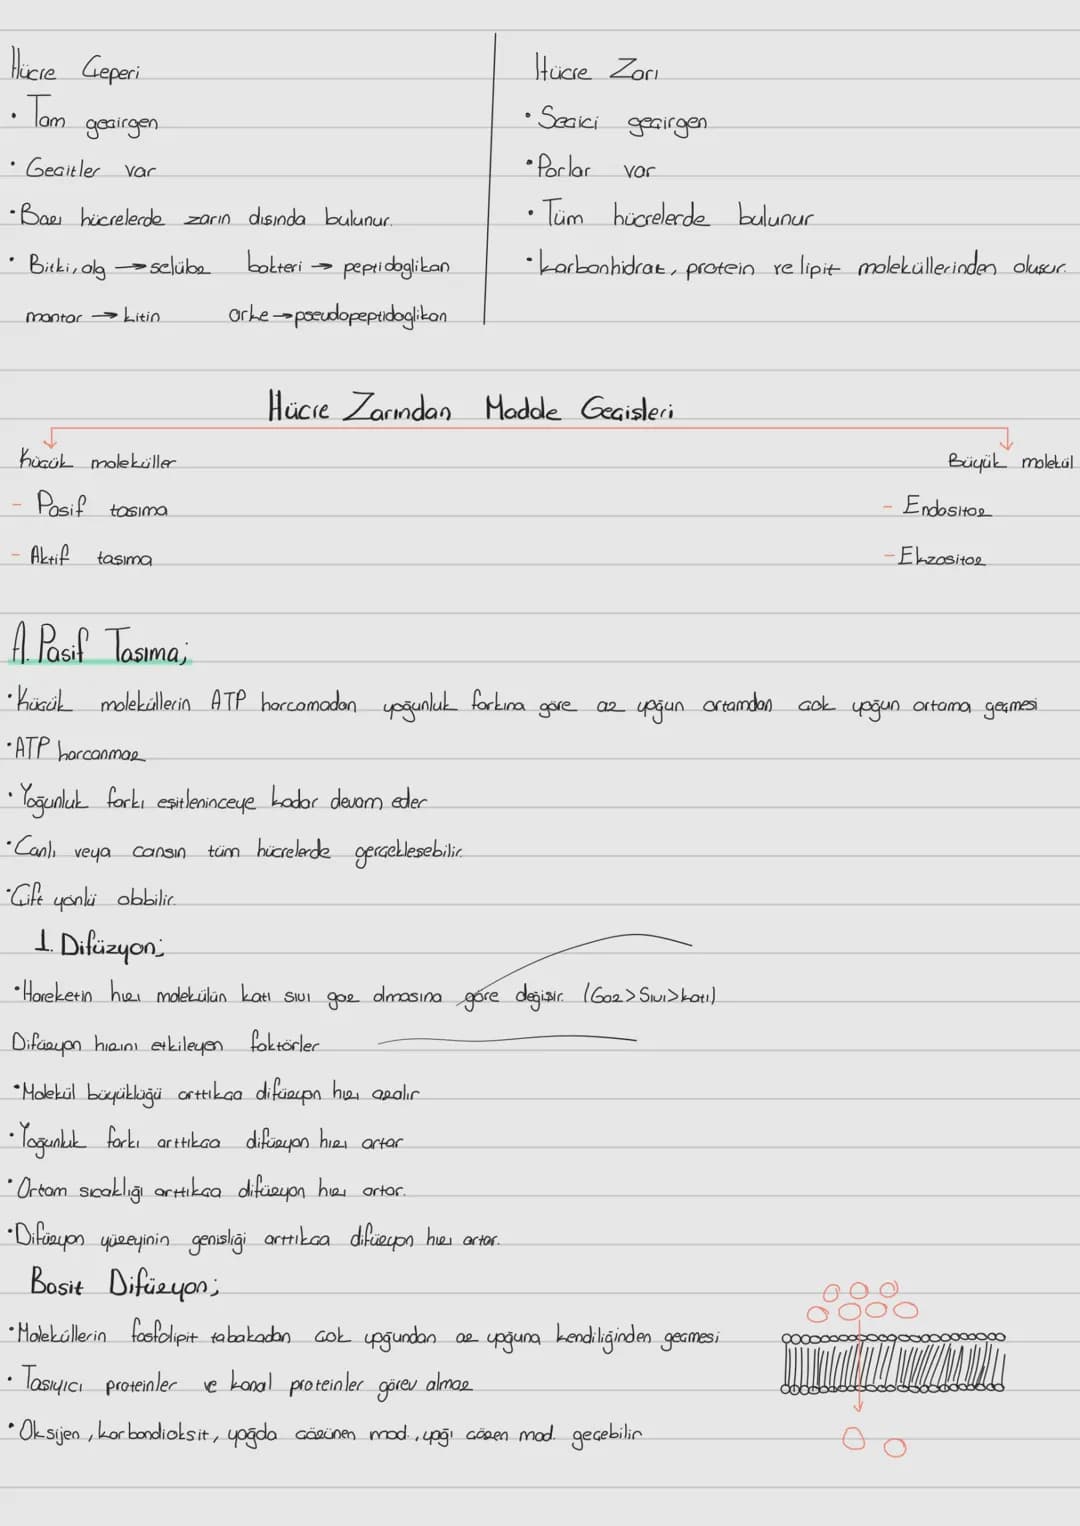 Hücre Çeperi
• Tam geçirgen
• Geçitler var
• Bazı hücrelerde zarın dışında bulunur.
• Bitki, alg → selüloz bakteri → peptidoglikan
mantar → kitin arke → pseudopeptidoglikan
Hücre Zarı
• Seçici geçirgen
• Porlar var
• Tüm hücrelerde bulunur
• karbonhidrat, protein ve lipit moleküllerinden oluşur.
Hücre Zarından Madde Geçişleri
Küçük moleküller
- Pasif taşıma
- Aktif taşıma
Büyük molekül
- Endositoz
- Ekzositoz
A. Pasif Taşıma;
• Küçük moleküllerin ATP harcamadan yoğunluk farkına göre az yoğun ortamdan çok yoğun ortama geçmesi
• ATP harcanmaz
• Yoğunluk farkı eşitleninceye kadar devam eder
• Canlı veya cansın tüm hücrelerde gerçekleşebilir.
• Çift yönlü olabilir.
1. Difüzyon;
• Hareketin hızı molekülün katı sıvı gaz olmasına göre değişir. (Gaz>Sıvı>katı)
Difüzyon hızını etkileyen faktörler
• Molekül büyüklüğü arttıkça difüzyon hızı azalır
• Yoğunluk farkı arttıkça difüzyon hızı artar
• Ortam sıcaklığı arttıkça difüzyon hızı artar.
• Difüzyon yüzeyinin genişliği arttıkça difüzyon hızı artar.
Basit Difüzyon;
• Moleküllerin fosfolipit tabakadan çok yoğundan az yoğuna kendiliğinden geçmesi
• Taşıyıcı proteinler ve kanal proteinler görev almaz
• Oksijen, karbondioksit, yağda çözünen mad., yağı çözen mad. geçebilir